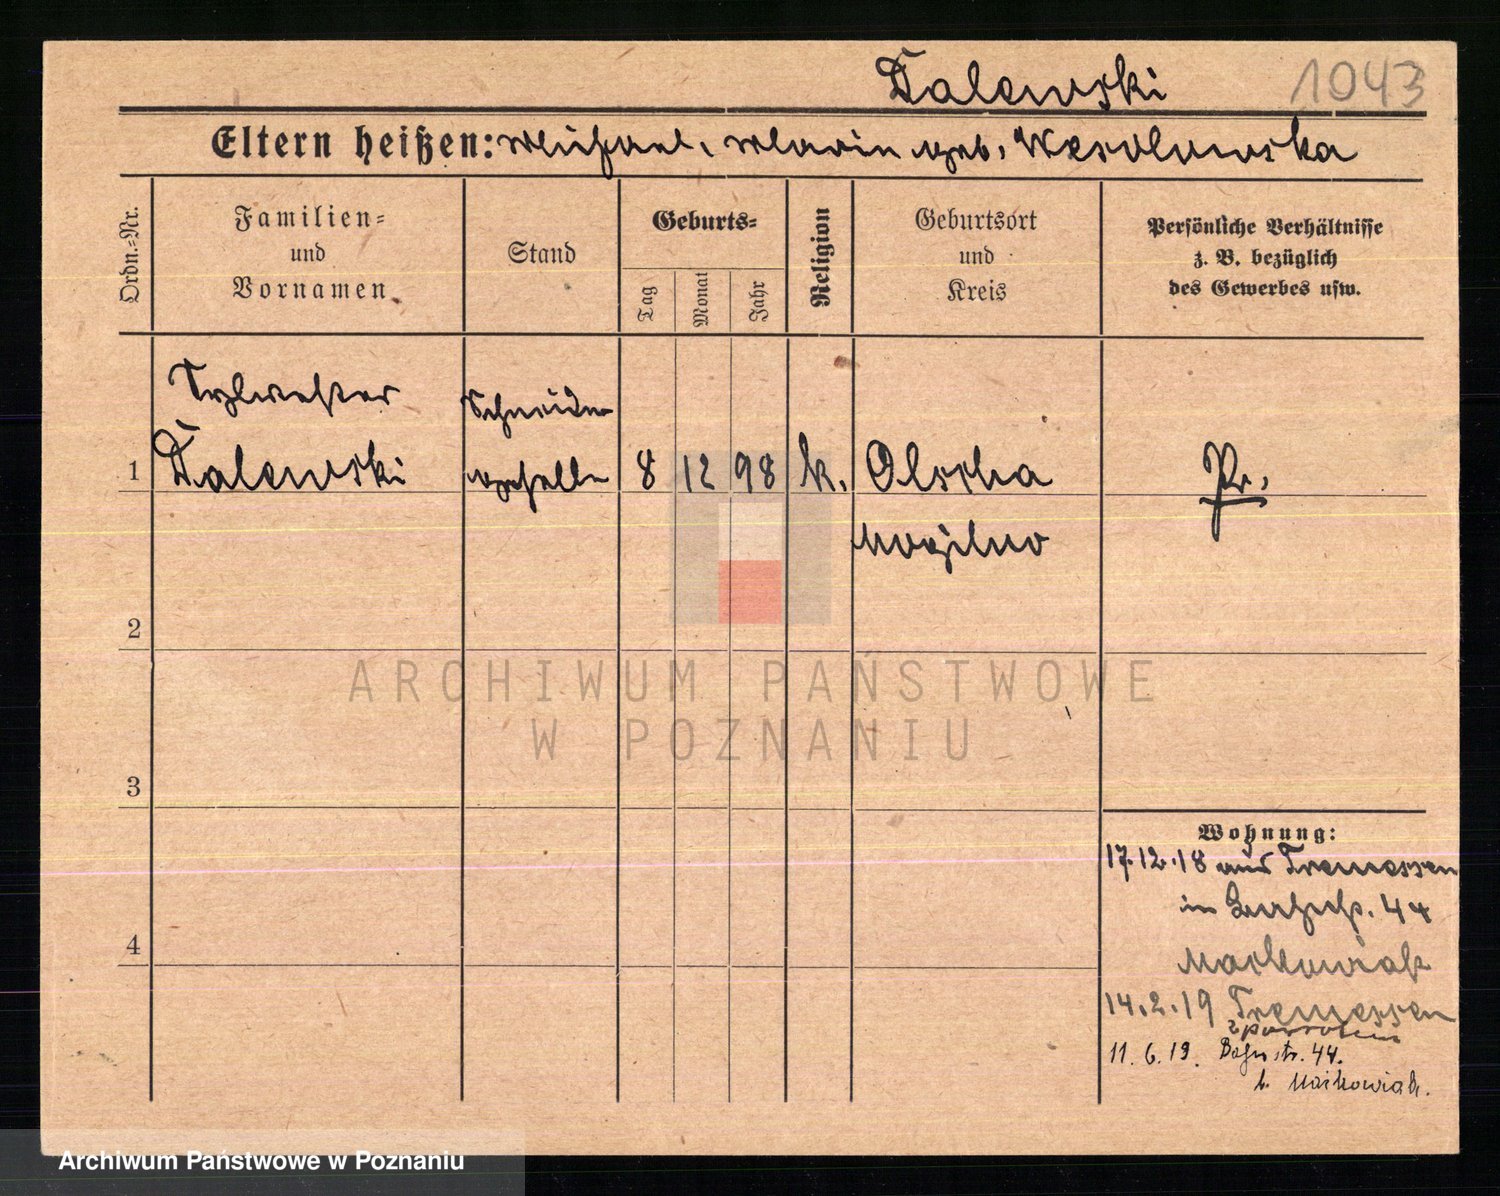 Dalewski 1043
Eltern heißen: Michael, Marie geb. Wesolowska
Ordn.=Nr.
Familien=
und
Vornamen
Stand
Geburts=
Tag
Monat
Jahr
Religion
Geburtsort
und
Kreis
Persönliche Verhältnisse
z. B. bezüglich
des Gewerbes usw.
Sylwester
Schneider
1 Dalewski geselle 8 12 98 k. Olscha Pr.
Mogilno
2
ARCHIWUM PAŃSTWOWE
W POZNANIU
3
Wohnung:
17.12.18 aus Tremessen
in 44
4
Maikowiak
14.2.19 Tremessen
z powrotem
11.6.19. Bahnstr. 44.
b. Maikowiak.
Archiwum Państwowe w Poznaniu